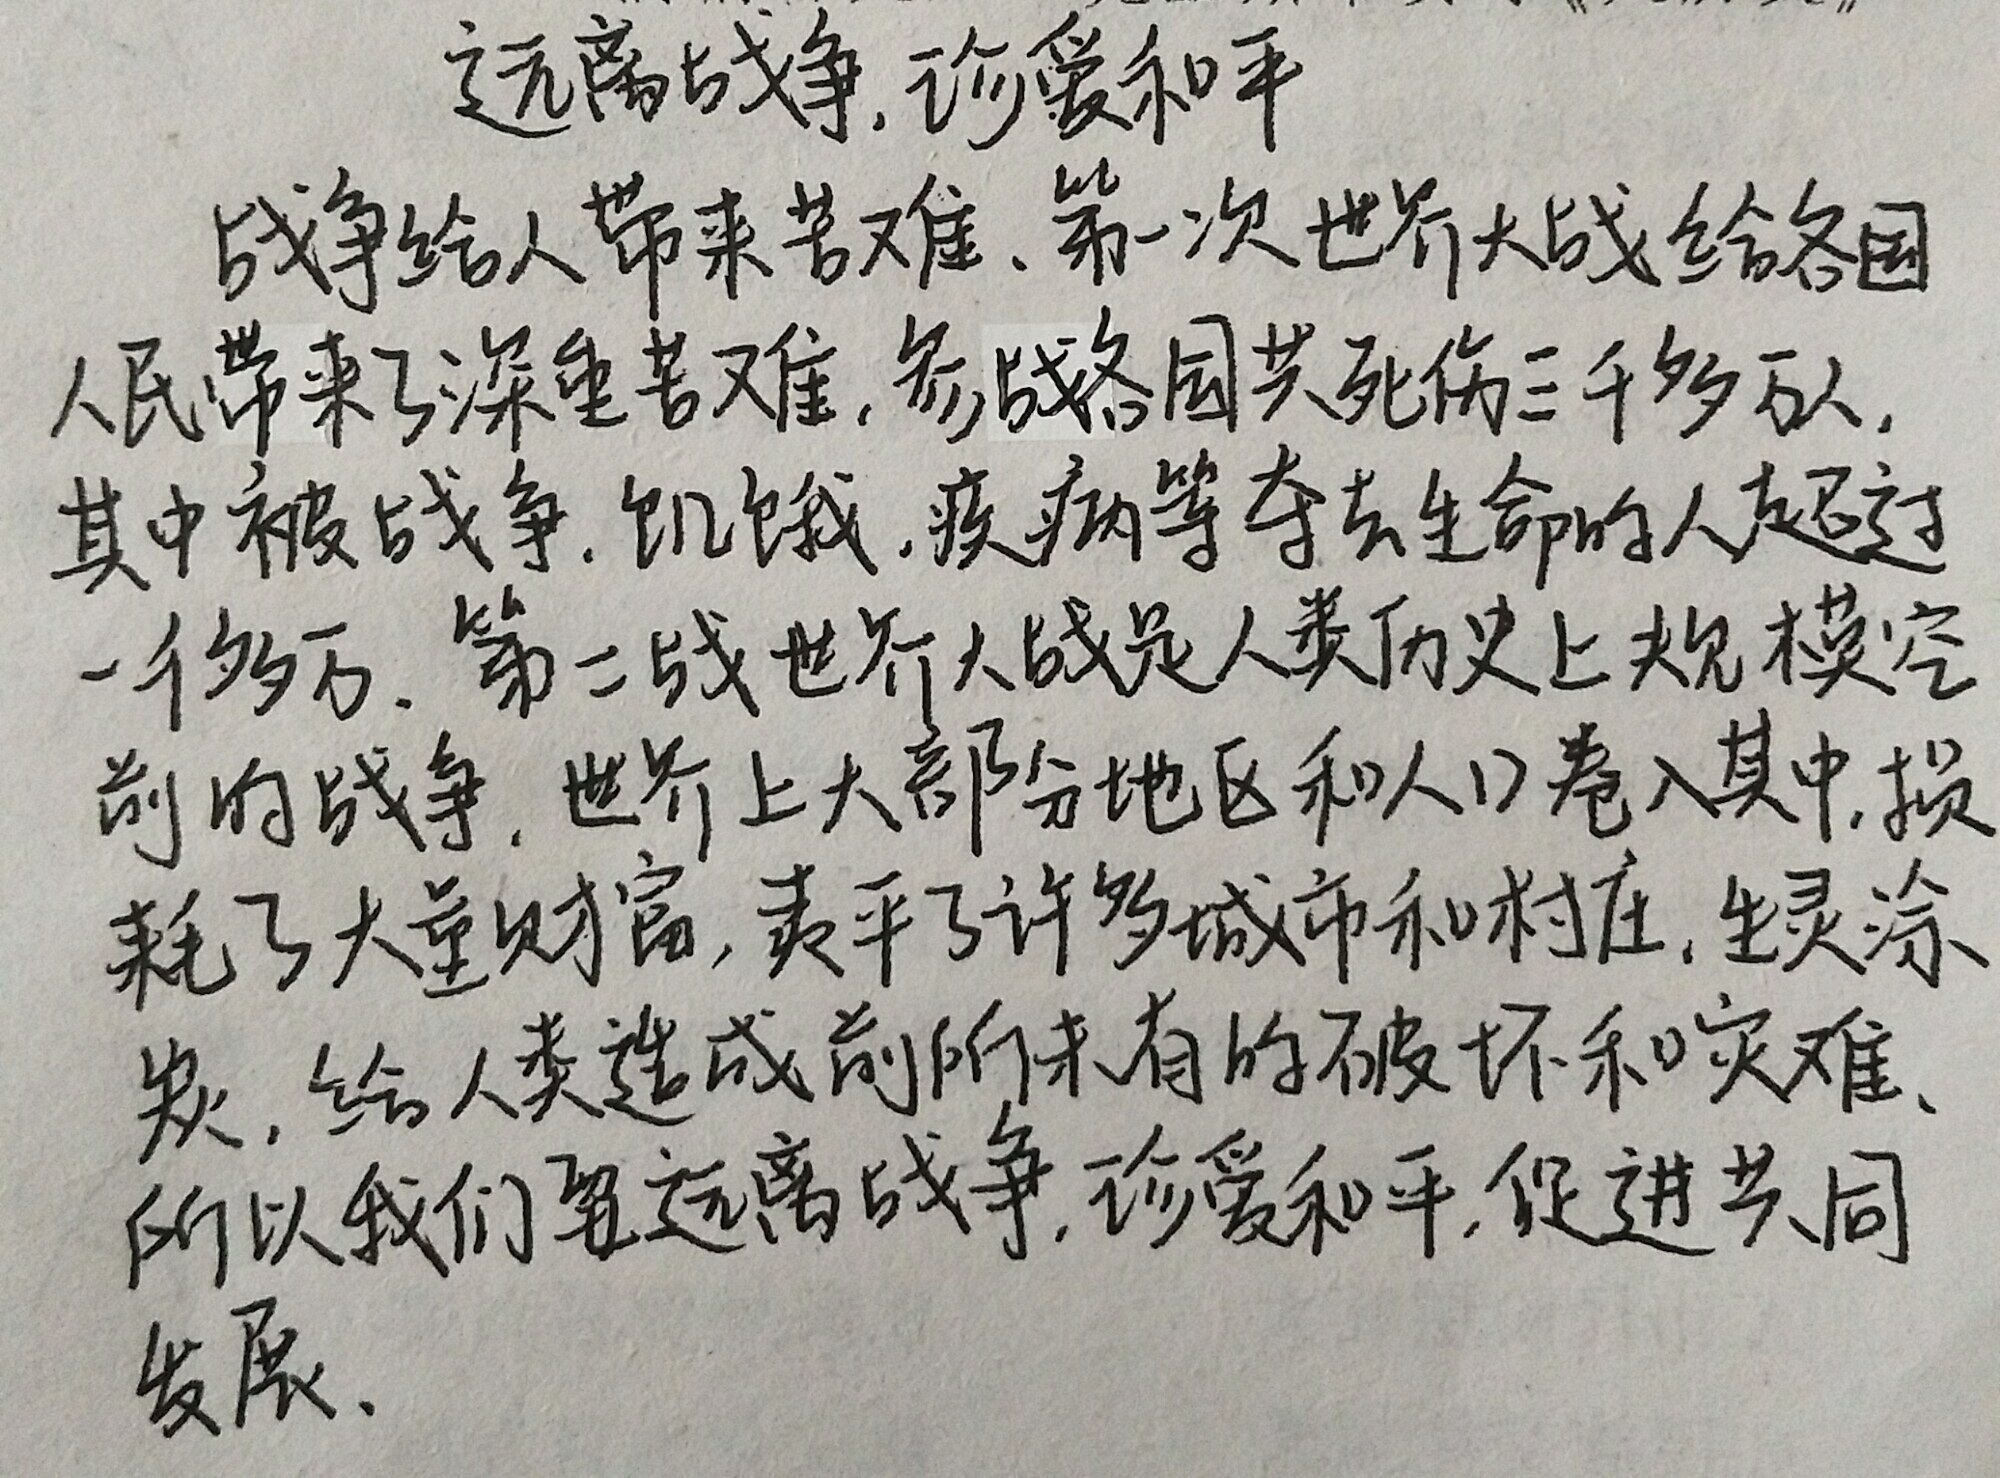 远离战争,珍爱和平
战争给人带来苦难、第一次世界大战给各国
人民带来了深重苦难,参战各国共死伤三千多万人,
其中被战争、饥饿、疾病等夺去生命的人超过
一千多万、第二战世界大战是人类历史上规模空
前的战争,世界上大部分地区和人口卷入其中,损
耗了大量财富,夷平了许多城市和村庄,生灵涂
炭,给人类造成前所未有的破坏和灾难、
所以我们要远离战争,珍爱和平,促进共同
发展、